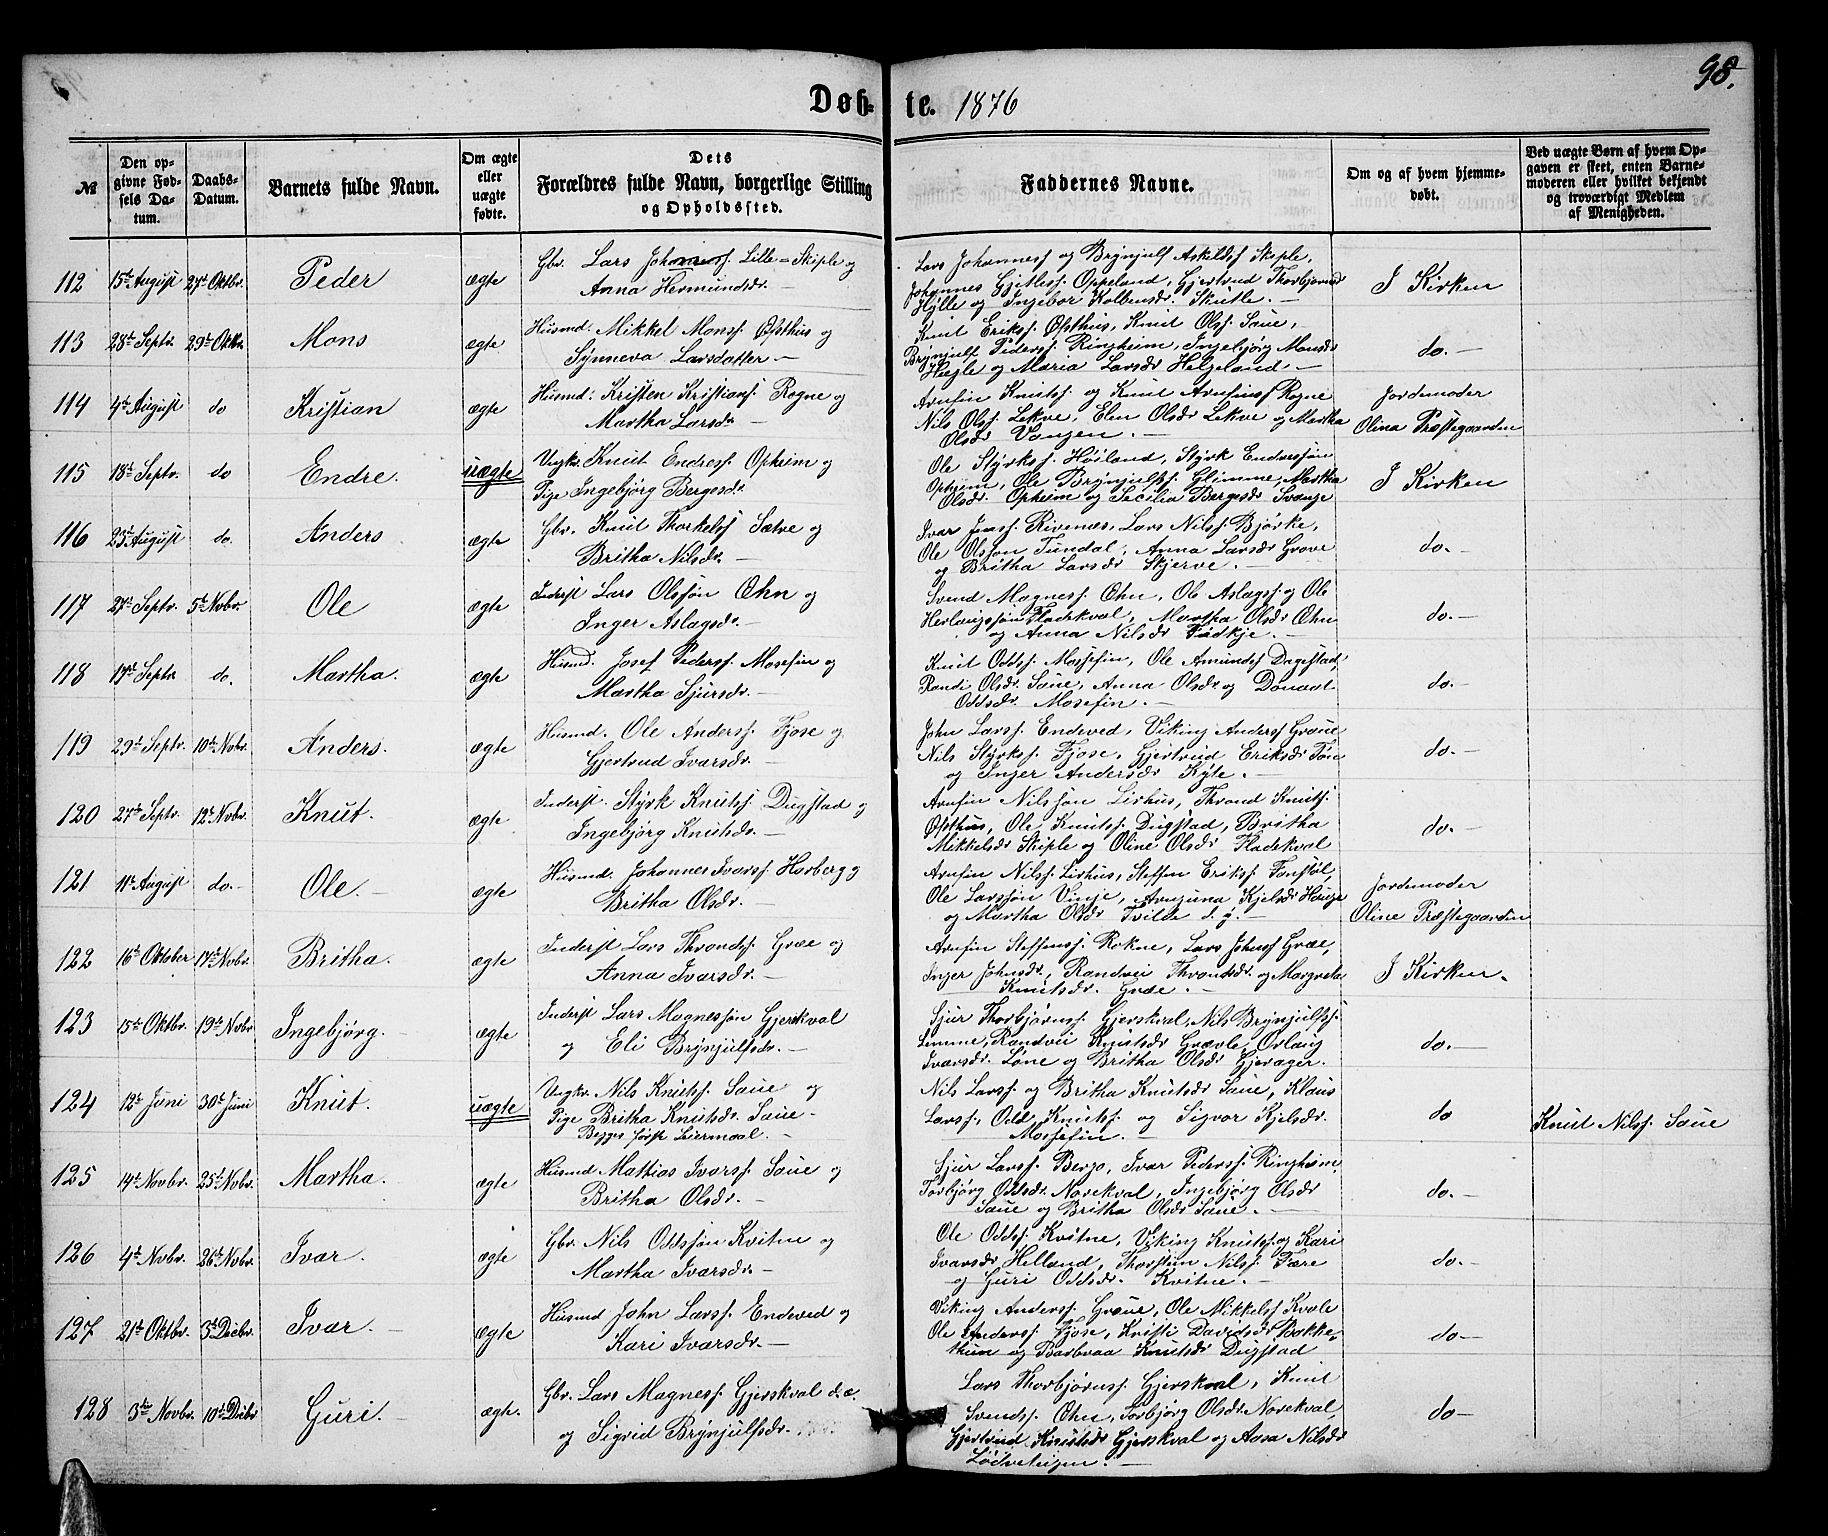 98.
Døb- te. 1876
№
Den opgivne Fødsels Datum.
Daabs-Datum.
Barnets fulde Navn.
Om ægte eller uægte fødte.
Dets Forældres fulde Navn, borgerlige Stilling og Opholdssted.
Faddernes Navne.
Om og af hvem hjemmedøbt.
Ved uægte Børn af hvem Opgaven er skeet, enten Barnemoderen eller hvilket bekjendt og troværdigt Medlem af Menigheden.
112 15de August 27de Oktbr. Peder ægte Gbr. Lars Johannesf. Lille=Skiple og
Anna Hermundsdr.
Lars Johannesf og Brynjulf Askildsf Skiple,
Johannes Gjellesf. Oppeland, Gjertrud Thorbjørnsd
Hylle og Ingebor Kolbensdr. Skutle. —
I Kirken
113 28de Septr. 29de Oktbr. Mons ægte Husmd. Mikkel Monsf. Østhus og
Synneva Larsdatter —
Knut Eriksf. Østhus, Knut Olsf. Saue,
Brynjulf Pedersf Ringheim, Ingebjørg Monsdr
Hægle og Maria Larsdr Helgeland. —
do. —
114 4de August do Kristian ægte Husmd. Kristen Kristiansf. Rogne og
Martha Larsdr —
Arnfin Knutsf. og Knut Arnfinsf Rogne
Nils Olsf. Lekve, Elen Olsdr Lekve og Martha
Olsdr Vangen. —
Jordemoder
Olina Præstegaarden
115 18de Septr. do Endre. uægte Ungkr. Knut Endresf. Opheim og
Pige Ingebjørg Bergesdr.
Ole Styrksf. Høiland, Styrk Endresføn
Opheim, Ole Brynjulfsf. Glimme, Martha
Olsdr. Opheim og Secilia Bergesdr Svange
I Kirken
116 23de August do. Anders ægte Gbr. Knut Thorkelsf Sætre og
Britha Nilsdr. —
Ivar Jensf. Rivenæs, Lars Nilsf. Bjørke,
Ole Olsføn Tundal, Anna Larsdr Grove
og Britha Larsdr Skjerve. —
do. —
117 27de Septr. 5te Novbr. Ole ægte Inderst Lars Olsføn Øhn og
Inger Aslagsdr. —
Svend Magnesf. Øhn, Ole Aslagsf. og Ole
Herlaugsføn Fladekval, Martha Olsdr Øhn
og Anna Nilsdr Tædkje. —
do. —
118 17de Septr do. Martha. ægte Husmd. Josef Pedersf. Mosefin og
Martha Sjursdr. —
Knut Oddsf. Mossefin, Ole Amundsf Dagestad,
Randi Olsdr. Saue, Anna Olsdr og Donaat
Oddsdr. Mosefin. —
do. —
119 29de Septr. 10de Novbr. Anders. ægte Husmd. Ole Andersf. Fjose og
Gjertrud Ivarsdr. —
John Larsf. Endeved, Viking Andersf Graue
Nils Styrksf. Fjose, Gjertrud Eriksdr Tøn
og Inger Andersdr Kyte. —
do. —
120 27de Septr. 12te Novbr. Knut. ægte Inderst. Styrk Knutsf. Dugstad og
Ingebjørg Knutsdr. —
Arnfin Nilsføn Lirhus, Thrond Knutsf.
Østhus, Ole Knutsf. Dugstad, Britha
Mikkelsdr Skiple og Oline Olsdr Fladekval
do. —
121 11te August do. — Ole. — ægte Husmd. Johannes Ivarsf. Horberg og
Britha Olsdr. —
Arnfin Nilsf. Lirhus, Steffen Eriksf. Fonstøl,
Ole Larsføn Vinje, Armjuna Kjelsdr Hauge
og Martha Olsdr Tvilde d. y. —
Jordemoder
Oline Præstegaarden
122 16de Oktober 17de Novbr. Britha. ægte Inderst Lars Throndsf. Græe og
Anna Ivarsdr. —
Arnfin Steffensf. Rokne, Lars Johnsf Græe,
Inger Johnsdr., Randvei Throndsdr. og Margreta
Knutsdr. Græe. —
I Kirken.
123 15de Oktbr. 19de Novbr Ingebjørg. ægte Inderst Lars Magnesføn Gjerskval
og Eli Brynjulfsdr. —
Sjur Thorbjørnsf. Gjerskval, Nils Brynjulfsf.
Lemme, Randvei Knutsdr Grævle, Orlaug
Ivarsdr. Løne og Britha Olsdr Gjerager.
do. —
124 12te Juni 30te Juni Knut. uægte Ungkr. Nils Knutsf. Saue og
Pige Britha Knutsdr. Saue —
Begges første Leiermaal. —
Nils Larsf. og Britha Knutsdr Saue, Klaus
Larsf., Odd Knutsf. og Sigvor Kjelsdr.
Mossefin. —
do
Knut Nilsf. Saue
125 14de Novbr. 25de Novbr. Martha. ægte Husmd. Mathias Ivarsf. Saue og
Britha Olsdr. —
Sjur Larsf. Berge, Ivar Pedersf. Ringheim,
Torbjørg Oddsdr. Norekval, Ingebjørg Olsdr
Saue og Britha Olsdr Saue. —
do. —
126 4de Novbr. 26de Novbr. Ivar. ægte Gbr. Nils Oddsføn Kvitne og
Martha Ivarsdr. —
Ole Oddsf. Kvitne, Viking Knutsf. og Kari
Ivarsdr Helland, Thorstein Nilsf. Fære
og Guri Oddsdr. Kvitne. —
do. —
127 21de Oktbr. 3de Decbr. Ivar. — ægte Husmd John Larsf. Endeved og
Kari Ivarsdr. —
Viking Andersf. Graue, Ole Mikkelsf Kvale
Ole Andersf. Fjose, Kristi Davidsdr Bakke-
thun og Barbraa Knutsdr Dugstad
do —
128 3die Novbr. 10de Decbr Guri. — ægte. Gbr. Lars Magnesf. Gjerskval d. æ.
og Sigrid Brynjulfsdr.
Lars Thorbjørnsf. Gjerskval, Knut
Svendsf. Øhn, Torbjørg Olsdr Norekval,
Gjertrud Knutsdr Gjerskval og Aasa Nilsdr
Lødveteigen. —
do —